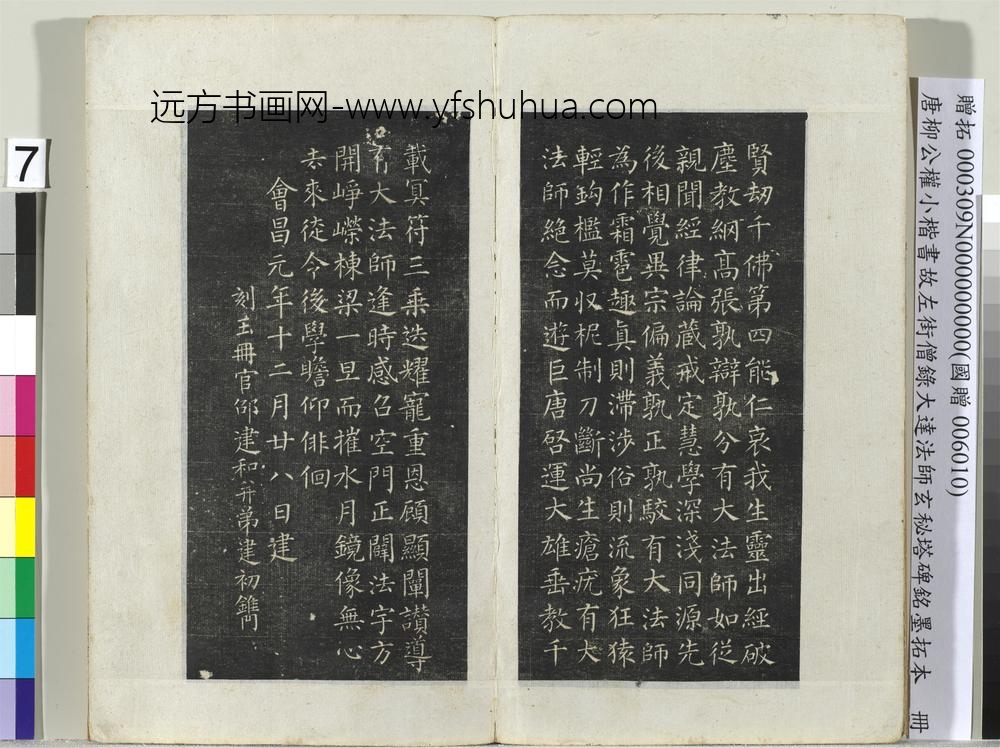 远方书画网-www.yfshuhua.com
贈拓 000309N000000000(國贈 006010)
唐柳公權小楷書故左街僧錄大達法師玄秘塔碑銘墨拓本 冊
賢劫千佛第四能仁哀我生靈出經破
塵教綱高張孰辯孰分有大法師如從
親聞經律論藏戒定慧學深淺同源先
後相覺異宗偏義孰正孰駮有大法師
為作霜雹趣真則滯涉俗則流象狂猿
輕鈎檻莫収柅制刀斷尚生瘡疣有大
法師絕念而遊巨唐啓運大雄垂教千
載冥符三乘迭耀寵重恩顧顯闡讚導
有大法師逢時感召空門正闢法宇方
開崢嶸棟梁一旦而摧水月鏡像無心
去來徒令後學瞻仰俳佪
會昌元年十二月廿八日建
刻玉冊官邵建和并弟建初鐫
7